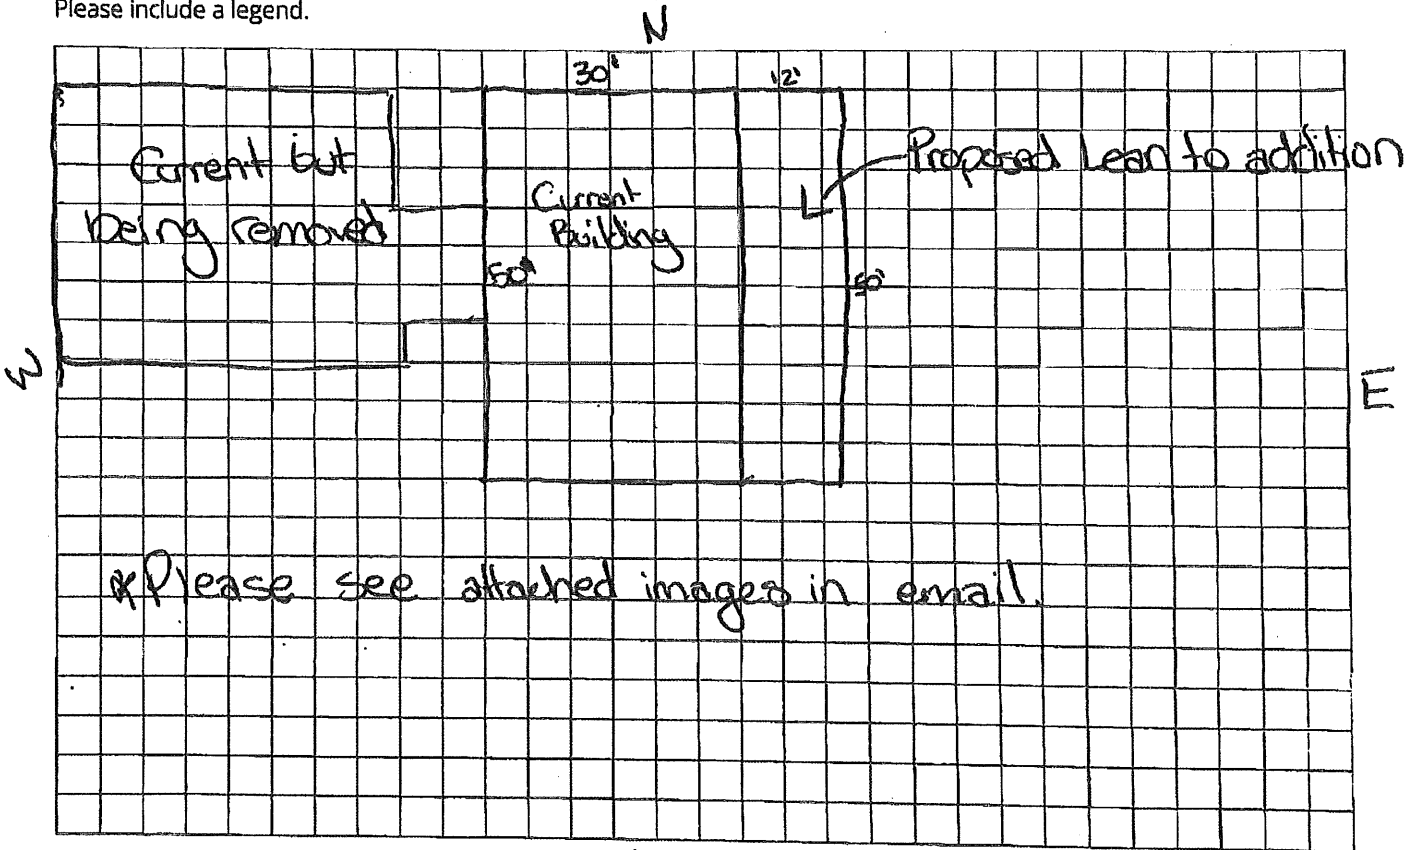 Please include a legend.
N
30'
12'
Current but
being removed
Current
Building
Proposed Lean to addition
50'
50'
W
E
*Please see attached images in email.